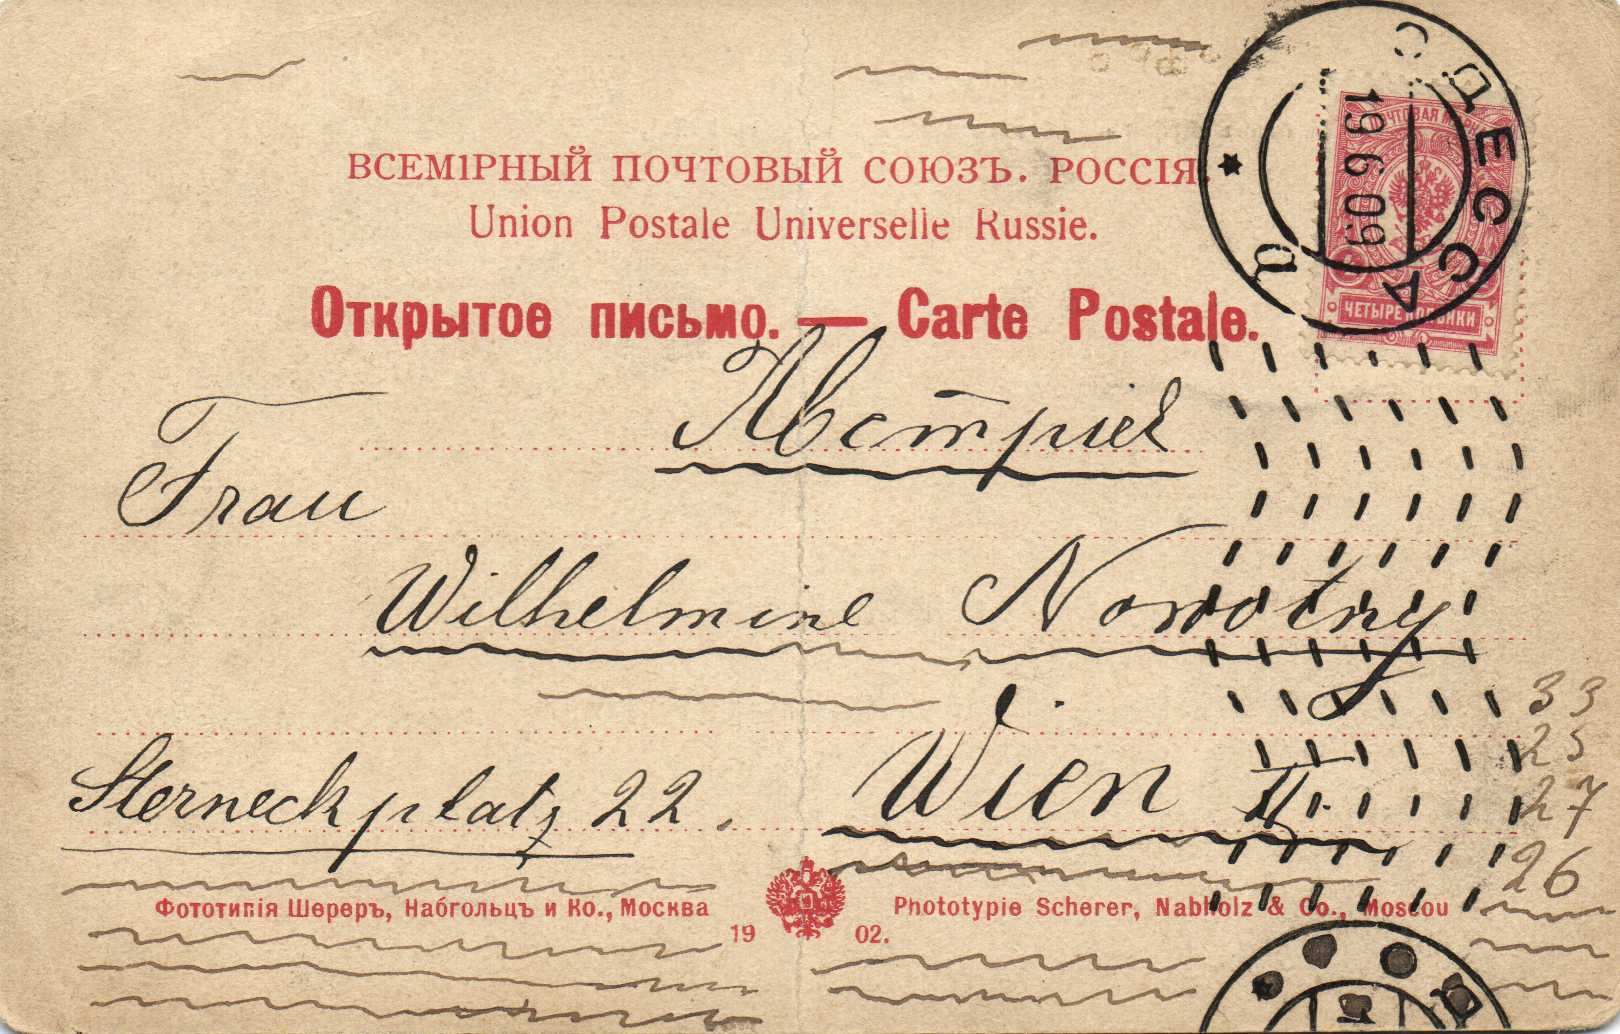 ВСЕМIРНЫЙ ПОЧТОВЫЙ СОЮЗЪ. РОССIЯ.
Union Postale Universelle Russie.
Открытое письмо. — Carte Postale.
ОДЕССА
19 6 09
ЧЕТЫРЕ КОПѢЙКИ
Австрiя
Frau
Wilhelmine Nowotny
Sterneckplatz 22.
Wien II.
33
25
27
26
Фототипiя Шереръ, Набгольцъ и Ко., Москва
Phototypie Scherer, Nabholz & Co., Moscou
1902.